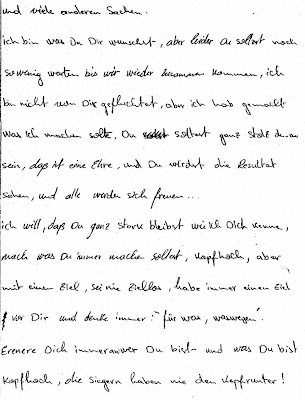 und viele anderen Sachen.
ich bin was Du Dir wunschst, aber leider Du solltest noch
so wenig warten bis wir wieder zusammen kommen, ich
bin nicht von Dir geflüchtet, aber ich hab gemacht
was ich machen sollte, Du solltest ganz stolz daran
sein, daß ist eine Ehre, und Du wirdst die Resultat
sehen, und alle werden sich freuen...
ich will, daß Du ganz stark bleibst wie ich Dich kenne,
mach was Du immer machen solltest, Kopfhoch, aber
mit einen Ziel, sei nie Ziellos, habe immer einen Ziel
vor Dir und denke immer: "für was, waswegen".
Erenere Dich immer wer Du bist und was Du bist
Kopfhoch, die Siegern haben nie den Kopfrunter!